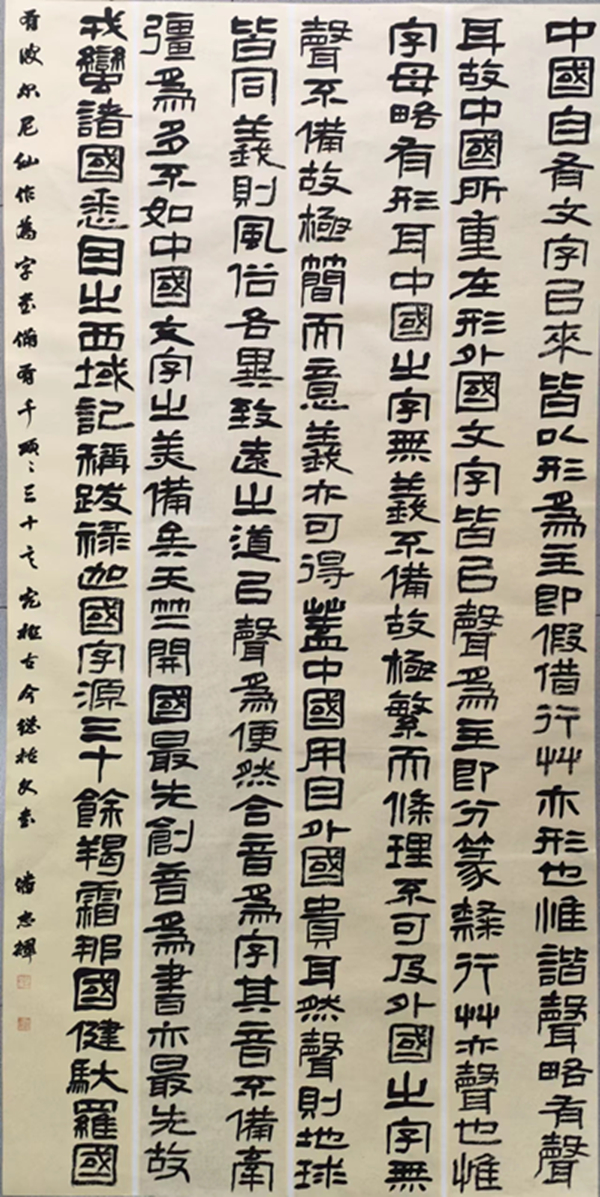 中國自有文字以來皆以形為主即假借行艸亦形也惟諧聲略有聲
耳故中國所重在形外國文字皆以聲為主即分篆隸行艸亦聲也惟
字母略有形耳中國之字無義不備故極繁而條理不可及外國之字無
聲不備故極簡而意義亦可得蓋中國用目外國貴耳然聲則地球
皆同義則風俗各異致遠之道以聲為便然合音為字其音不備牽
彊為多不如中國文字之美備矣天竺開國最先創音為書亦最先故
戎蠻諸國悉因之西域記稱跋祿迦國字源三十餘羯霜那國健馱羅國
有波尔尼仙作為字书備有千頌頌三十言究極古今總括文书